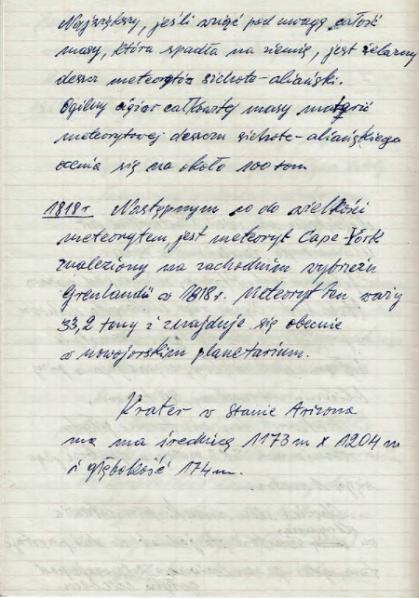 Największy, jeśli wziąć pod uwagę całość
masy, która spadła na ziemię, jest żelazny
deszcz meteorytów sichote-aliański.
Ogólny ciężar całkowitej masy
meteorytowej deszczu sichote-aliańskiego
ocenia się na około 100 ton.
1818 r Następnym co do wielkości
meteorytem jest meteoryt Cape York
znaleziony na zachodnim wybrzeżu
Grenlandii w 1818 r. Meteoryt ten waży
33,2 tony i znajduje się obecnie
w nowojorskim planetarium.
Krater w Stanie Arizona
ma ma średnicę 1173 m x 1204 m
i głębokość 174 m.